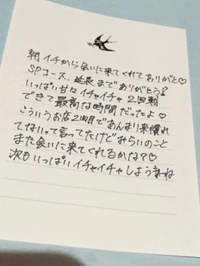 朝イチから会いに来てくれてありがと♡
SPコース、延長までありがとう!
いっぱい甘々イチャイチャ2回戦
できて最高な時間だったよ♡
こういうお店2回目であんまり来慣れ
てないって言ってたけどみらいのこと
また会いに来てくれるかな?♡
次もいっぱいイチャイチャしようまね